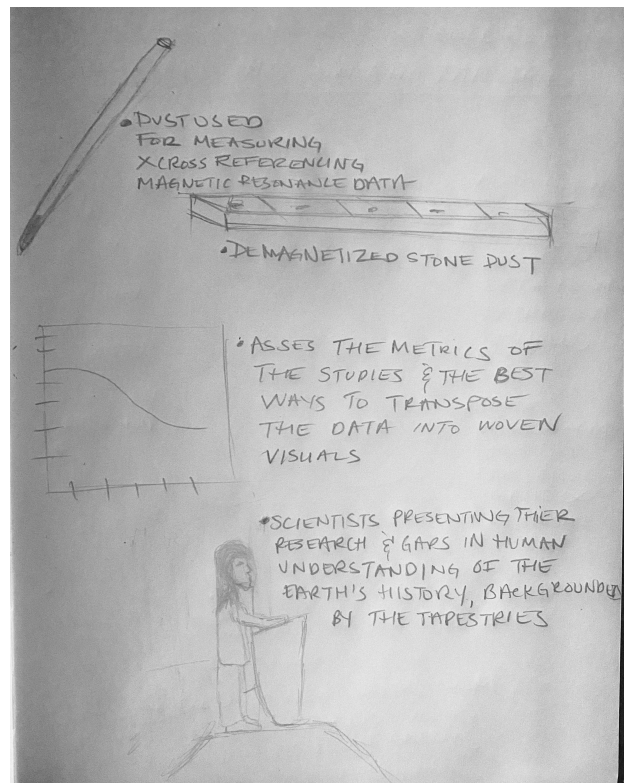 • DUST USED
FOR MEASURING
X CROSS REFERENCING
MAGNETIC RESONANCE DATA
• DEMAGNETIZED STONE DUST
• ASSES THE METRICS OF
THE STUDIES & THE BEST
WAYS TO TRANSPOSE
THE DATA INTO WOVEN
VISUALS
• SCIENTISTS PRESENTING THIER
RESEARCH & GAPS IN HUMAN
UNDERSTANDING OF THE
EARTH'S HISTORY, BACKGROUNDED
BY THE TAPESTRIES